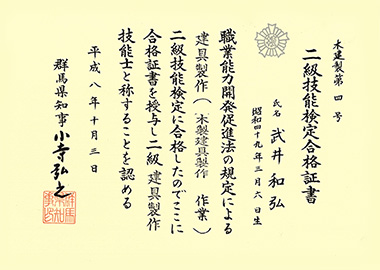 木建製第四号
二級技能検定合格証書
氏名 武井和弘
昭和四十九年三月六日生
職業能力開発促進法の規定による
建具製作(木製建具製作作業)
二級技能検定に合格したのでここに
合格証書を授与し二級建具製作
技能士と称することを認める
平成八年十月三日
群馬県知事 小寺弘之